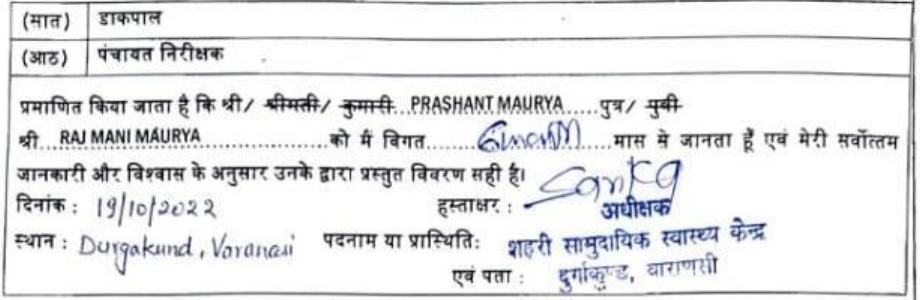 (सात) डाकपाल
(आठ) पंचायत निरीक्षक
प्रमाणित किया जाता है कि श्री/ श्रीमती/ कुमारी...PRASHANT MAURYA......पुत्र/ पुत्री
श्री....RAJ MANI MAURYA..............................को मैं विगत...........6 month.......मास से जानता हूँ एवं मेरी सर्वोत्तम
जानकारी और विश्वास के अनुसार उनके द्वारा प्रस्तुत विवरण सही है।
दिनांक : 19/10/2022 हस्ताक्षर :
अधीक्षक
स्थान : Durgakund, Varanasi पदनाम या प्रास्थिति: शहरी सामुदायिक स्वास्थ्य केन्द्र
एवं पता : दुर्गाकुण्ड, वाराणसी